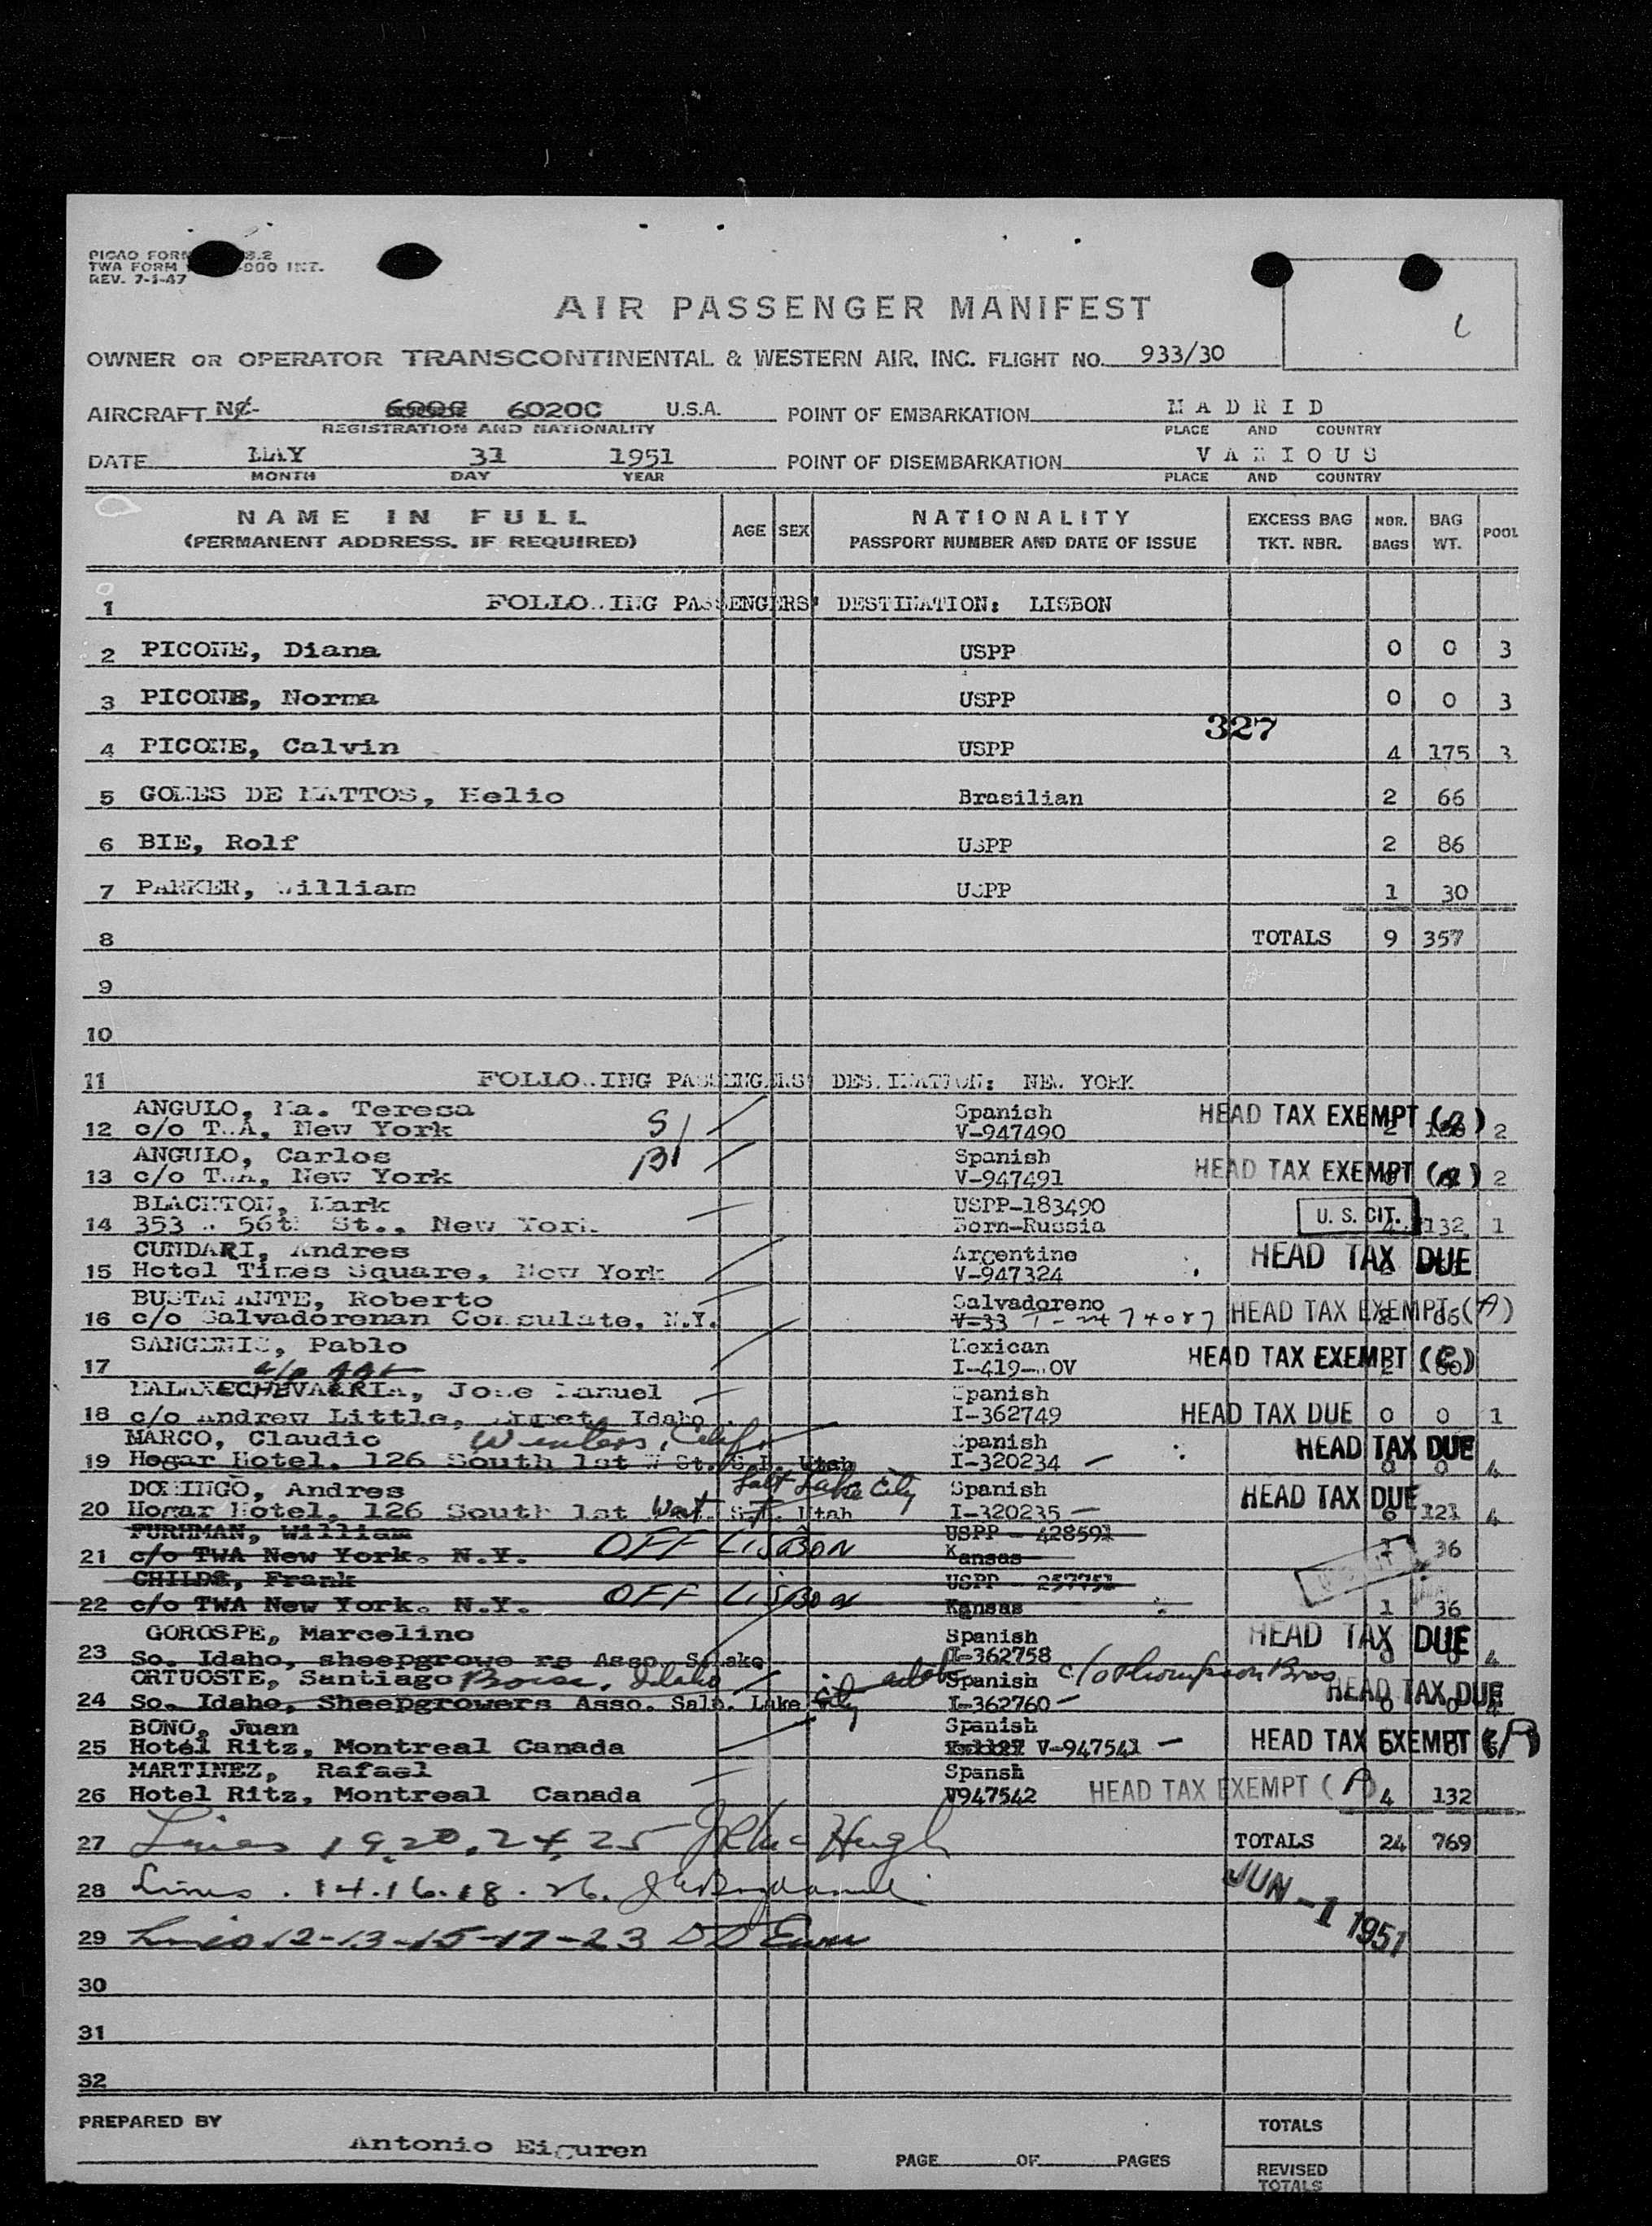 PICAO FORM 8.2
TWA FORM -000 INT.
REV. 7-1-47
AIR PASSENGER MANIFEST
OWNER OR OPERATOR TRANSCONTINENTAL & WESTERN AIR, INC. FLIGHT NO. 933/30
AIRCRAFT NC- 6020C U.S.A. POINT OF EMBARKATION MADRID
REGISTRATION AND NATIONALITY PLACE AND COUNTRY
DATE MAY 31 1951 POINT OF DISEMBARKATION VARIOUS
MONTH DAY YEAR PLACE AND COUNTRY
NAME IN FULL AGE SEX NATIONALITY EXCESS BAG NBR. BAG POOL
(PERMANENT ADDRESS, IF REQUIRED) PASSPORT NUMBER AND DATE OF ISSUE TKT. NBR. BAGS WT.
1 FOLLOWING PASSENGERS' DESTINATION: LISBON
2 PICONE, Diana USPP 0 0 3
3 PICONE, Norma USPP 0 0 3
327
4 PICONE, Calvin USPP 4 175 3
5 GOMES DE MATTOS, Helio Brasilian 2 66
6 BIE, Rolf USPP 2 86
7 PARKER, William USPP 1 30
8 TOTALS 9 357
9
10
11 FOLLOWING PASSENGERS' DESTINATION: NEW YORK
ANGULO, Ma. Teresa Spanish HEAD TAX EXEMPT
12 c/o TWA, New York V-947490 2
ANGULO, Carlos Spanish HEAD TAX EXEMPT
13 c/o TWA, New York V-947491 2
BLACKTON, Mark USPP-183490 U. S. CIT.
14 353 W. 56th St., New York Born-Russia 132 1
CUNDARI, Andres Argentine HEAD TAX DUE
15 Hotel Times Square, New York V-947324
BUSTAMANTE, Roberto Salvadoreno
16 c/o Salvadorenan Consulate, N.Y. V-33 HEAD TAX EXEMPT (A)
SANGENIS, Pablo Mexican HEAD TAX EXEMPT
17 I-419-NOV
MALAXECHEVARRIA, Jose Manuel Spanish
18 c/o Andrew Little, Idaho I-362749 HEAD TAX DUE 0 0 1
MARCO, Claudio Winters, Calif. Spanish HEAD TAX DUE
19 Hogar Hotel, 126 South 1st W St. S.L. Utah I-320234 0 0 4
Salt Lake City
DOMINGO, Andres Spanish HEAD TAX DUE
20 Hogar Hotel, 126 South 1st West S.L. Utah I-320235 6 121 4
FURHMAN, William USPP - 428591
21 c/o TWA New York. N.Y. OFF LISBON Kansas 1 36
CHILDS, Frank USPP - 257751
22 c/o TWA New York. N.Y. OFF LISBON Kansas 1 36
GOROSPE, Marcelino Spanish HEAD TAX DUE
23 So. Idaho, sheepgrowe rs Asso. S.Lake I-362758 4
ORTUOSTE, Santiago Boise, Idaho Spanish c/o Thompson Bros HEAD TAX DUE
24 So. Idaho, Sheepgrowers Asso. Salt. Lake City I-362760
BONO, Juan Spanish
25 Hotel Ritz, Montreal Canada V-947541 HEAD TAX EXEMPT
MARTINEZ, Rafael Spansh
26 Hotel Ritz, Montreal Canada V947542 HEAD TAX EXEMPT (A) 4 132
27 Lines 19,20,24,25 TOTALS 24 769
28 Lines . 14.16.18.26.
JUN -1 1951
29 Lines 12-13-15-17-23
30
31
32
PREPARED BY
Antonio Eiguren
PAGE OF PAGES
TOTALS
REVISED TOTALS